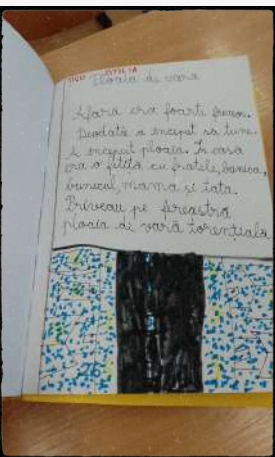 OTILIA
Ploaia de vară
Afară era foarte frumos.
Deodată a început să tune.
A început ploaia. În casă
era o fetiță cu fratele, bunica,
bunicul, mama și tata.
Priveau pe fireastră
ploaia de vară torențială